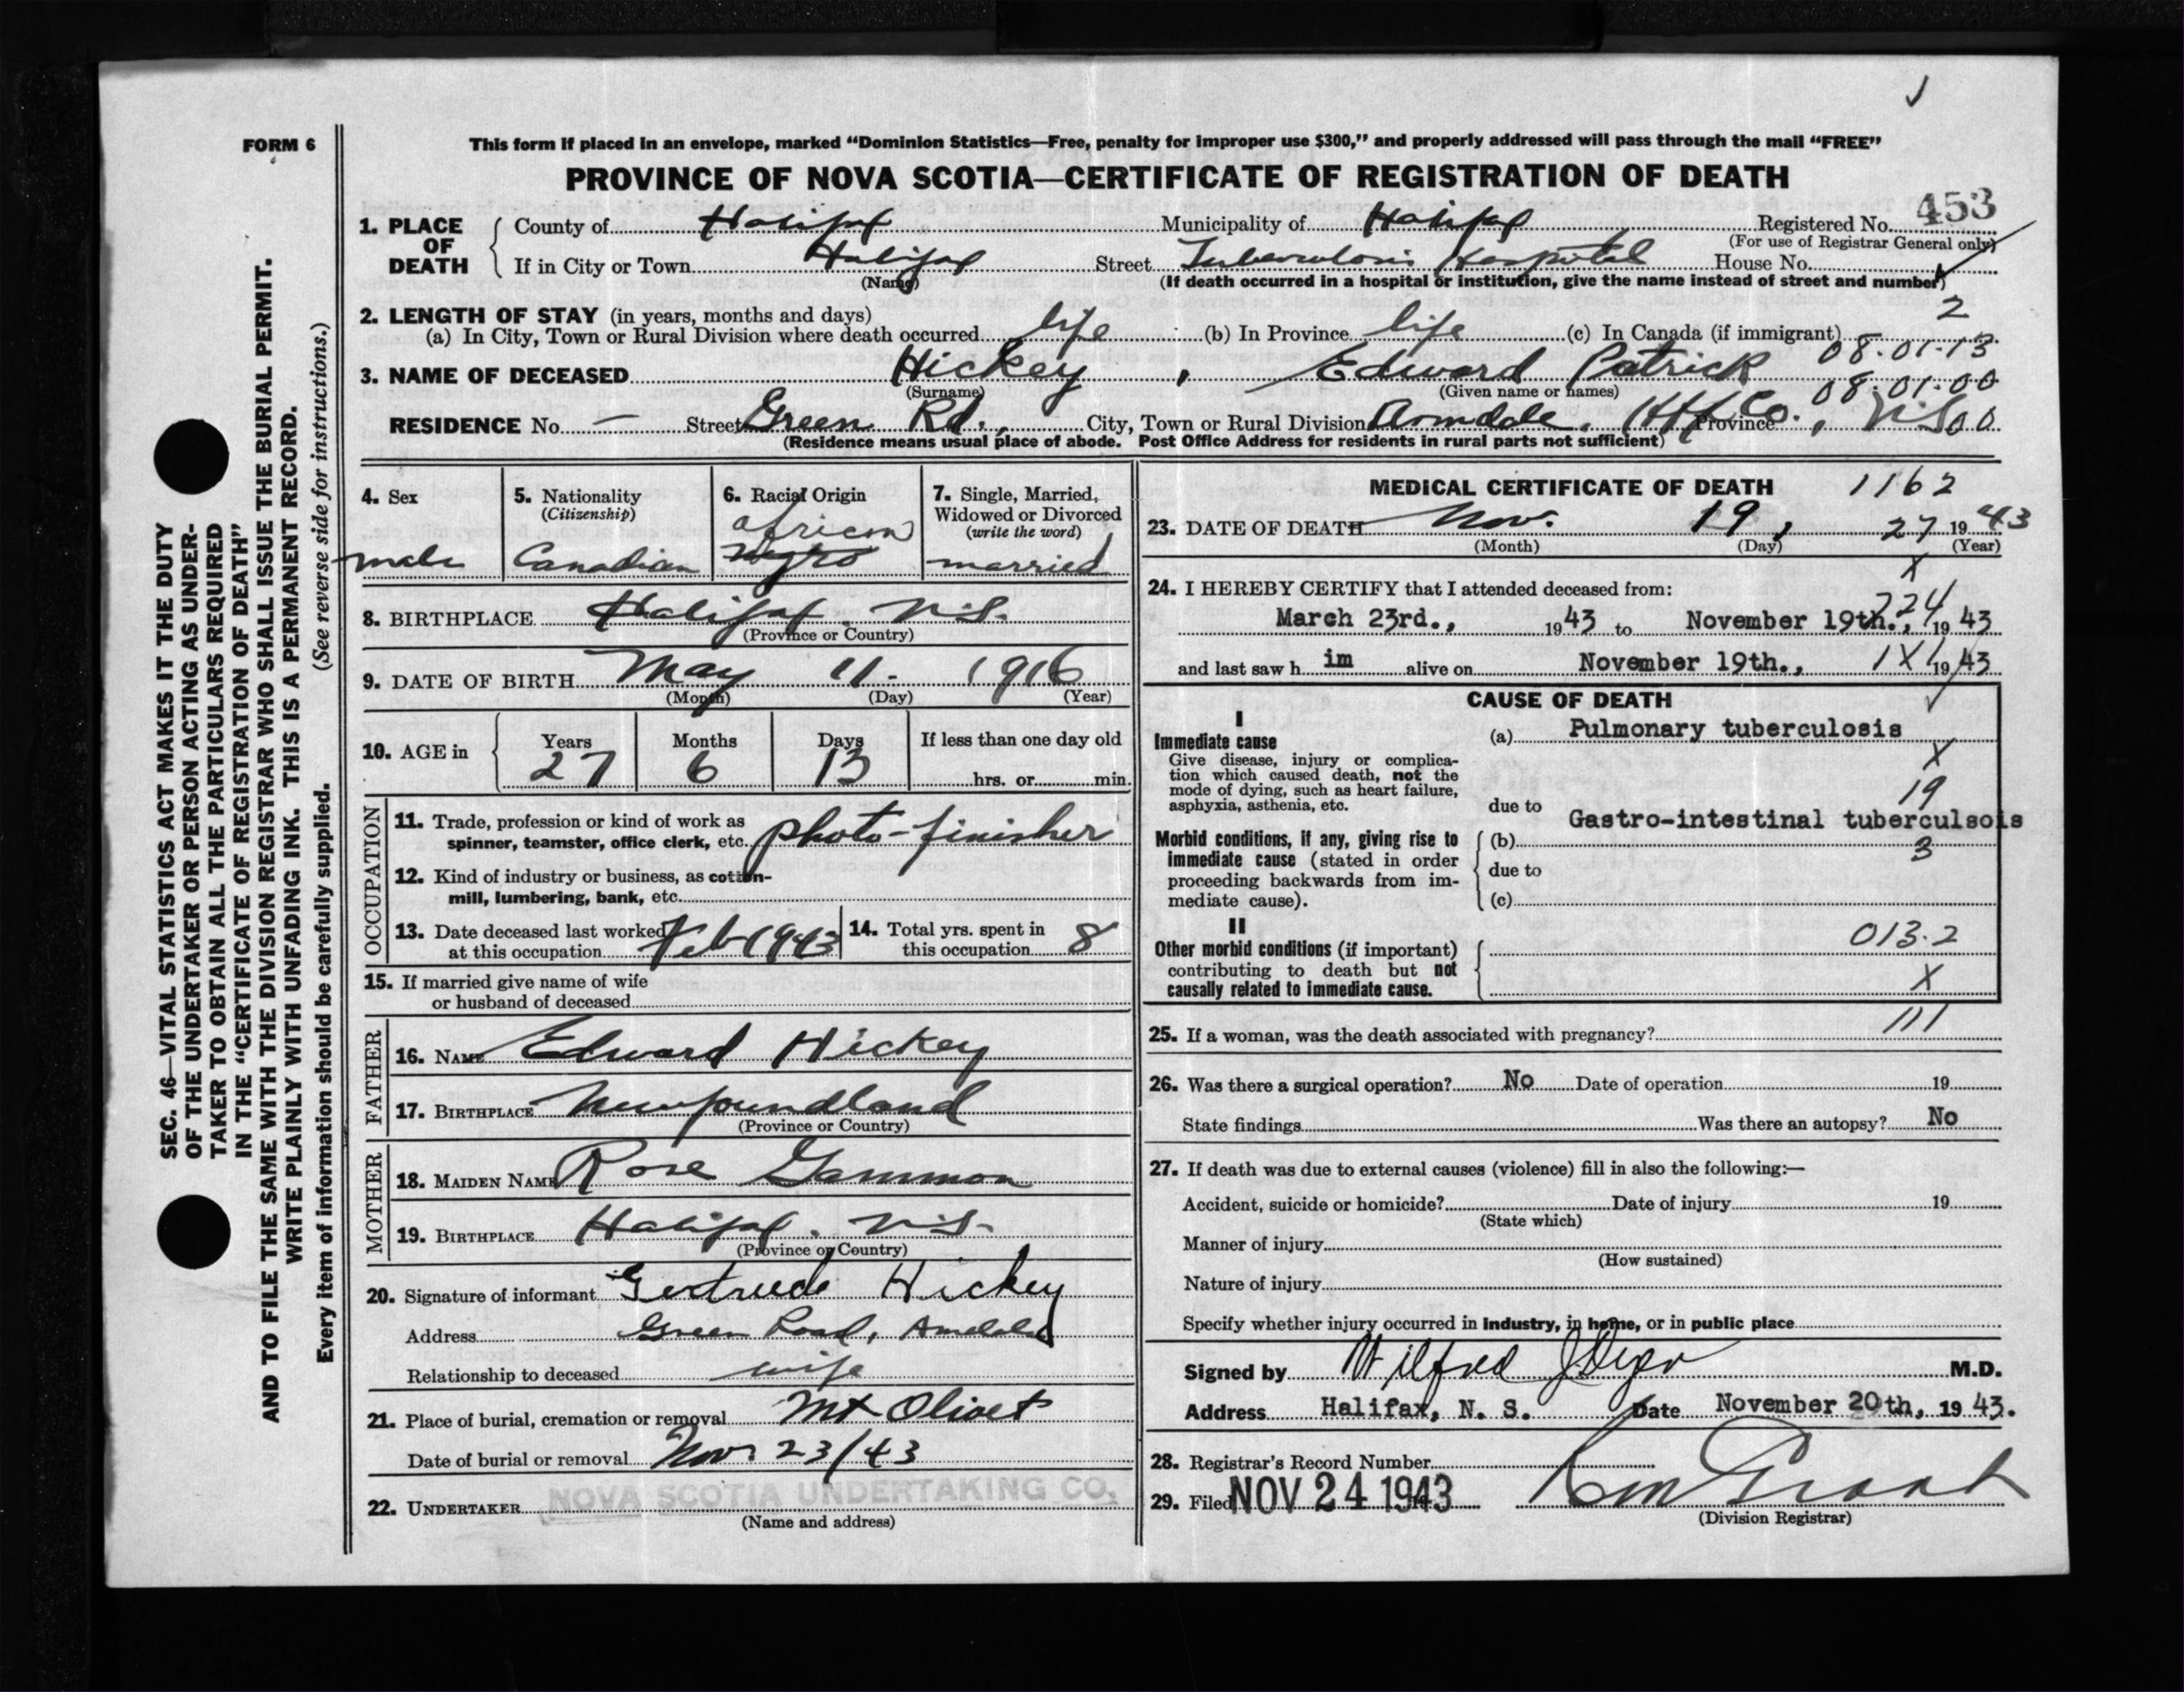 FORM 6
This form if placed in an envelope, marked "Dominion Statistics—Free, penalty for improper use $300," and properly addressed will pass through the mail "FREE"
PROVINCE OF NOVA SCOTIA—CERTIFICATE OF REGISTRATION OF DEATH
1. PLACE OF DEATH County of Halifax Municipality of Halifax Registered No. 453
(For use of Registrar General only)
If in City or Town Halifax Street Tuberculosis Hospital House No.
(Name) (If death occurred in a hospital or institution, give the name instead of street and number)
2. LENGTH OF STAY (in years, months and days) 2
(a) In City, Town or Rural Division where death occurred life (b) In Province life (c) In Canada (if immigrant)
08.01.13
3. NAME OF DECEASED Hickey, Edward Patrick
(Surname) (Given name or names) 08.01.00
RESIDENCE No. — Street Green Rd., City, Town or Rural Division Armdale, Hfx Co., Province N.S. 00
(Residence means usual place of abode. Post Office Address for residents in rural parts not sufficient)
SEC. 46—VITAL STATISTICS ACT MAKES IT THE DUTY
OF THE UNDERTAKER OR PERSON ACTING AS UNDER-
TAKER TO OBTAIN ALL THE PARTICULARS REQUIRED
IN THE "CERTIFICATE OF REGISTRATION OF DEATH"
AND TO FILE THE SAME WITH THE DIVISION REGISTRAR WHO SHALL ISSUE THE BURIAL PERMIT.
WRITE PLAINLY WITH UNFADING INK. THIS IS A PERMANENT RECORD.
Every item of information should be carefully supplied. (See reverse side for instructions.)
4. Sex male
5. Nationality (Citizenship) Canadian
6. Racial Origin african negro
7. Single, Married, Widowed or Divorced (write the word) married
8. BIRTHPLACE Halifax. N.S.
(Province or Country)
9. DATE OF BIRTH May 11- 1916
(Month) (Day) (Year)
10. AGE in Years 27 Months 6 Days 13 If less than one day old
hrs. or min.
OCCUPATION
11. Trade, profession or kind of work as
spinner, teamster, office clerk, etc. photo-finisher
12. Kind of industry or business, as cotton-
mill, lumbering, bank, etc.
13. Date deceased last worked at this occupation Feb 1943
14. Total yrs. spent in this occupation 8
15. If married give name of wife
or husband of deceased
FATHER
16. NAME Edward Hickey
17. BIRTHPLACE Newfoundland
(Province or Country)
MOTHER
18. MAIDEN NAME Rose Gammon
19. BIRTHPLACE Halifax. N.S.
(Province or Country)
20. Signature of informant Gertrude Hickey
Address Green Road, Armdale
Relationship to deceased wife
21. Place of burial, cremation or removal Mt Olivet
Date of burial or removal Nov 23/43
22. UNDERTAKER NOVA SCOTIA UNDERTAKING CO.
(Name and address)
MEDICAL CERTIFICATE OF DEATH 1162
23. DATE OF DEATH Nov. 19, 27 1943
(Month) (Day) (Year)
X
24. I HEREBY CERTIFY that I attended deceased from:
224
March 23rd., 1943 to November 19th., 1943
and last saw h im alive on November 19th., 1X1 1943
CAUSE OF DEATH
I
Immediate cause
Give disease, injury or complica-
tion which caused death, not the
mode of dying, such as heart failure,
asphyxia, asthenia, etc.
(a) Pulmonary tuberculosis
X
19
due to
Gastro-intestinal tuberculsois
Morbid conditions, if any, giving rise to
immediate cause (stated in order
proceeding backwards from im-
mediate cause).
(b)
3
due to
(c)
II
Other morbid conditions (if important)
contributing to death but not
causally related to immediate cause.
013.2
X
25. If a woman, was the death associated with pregnancy? 111
26. Was there a surgical operation? No Date of operation 19
State findings Was there an autopsy? No
27. If death was due to external causes (violence) fill in also the following:—
Accident, suicide or homicide? Date of injury 19
(State which)
Manner of injury
(How sustained)
Nature of injury
Specify whether injury occurred in industry, in home, or in public place
Signed by Wilfred J Dyer M.D.
Address Halifax, N. S. Date November 20th, 1943.
28. Registrar's Record Number
29. Filed NOV 24 1943
(Division Registrar)